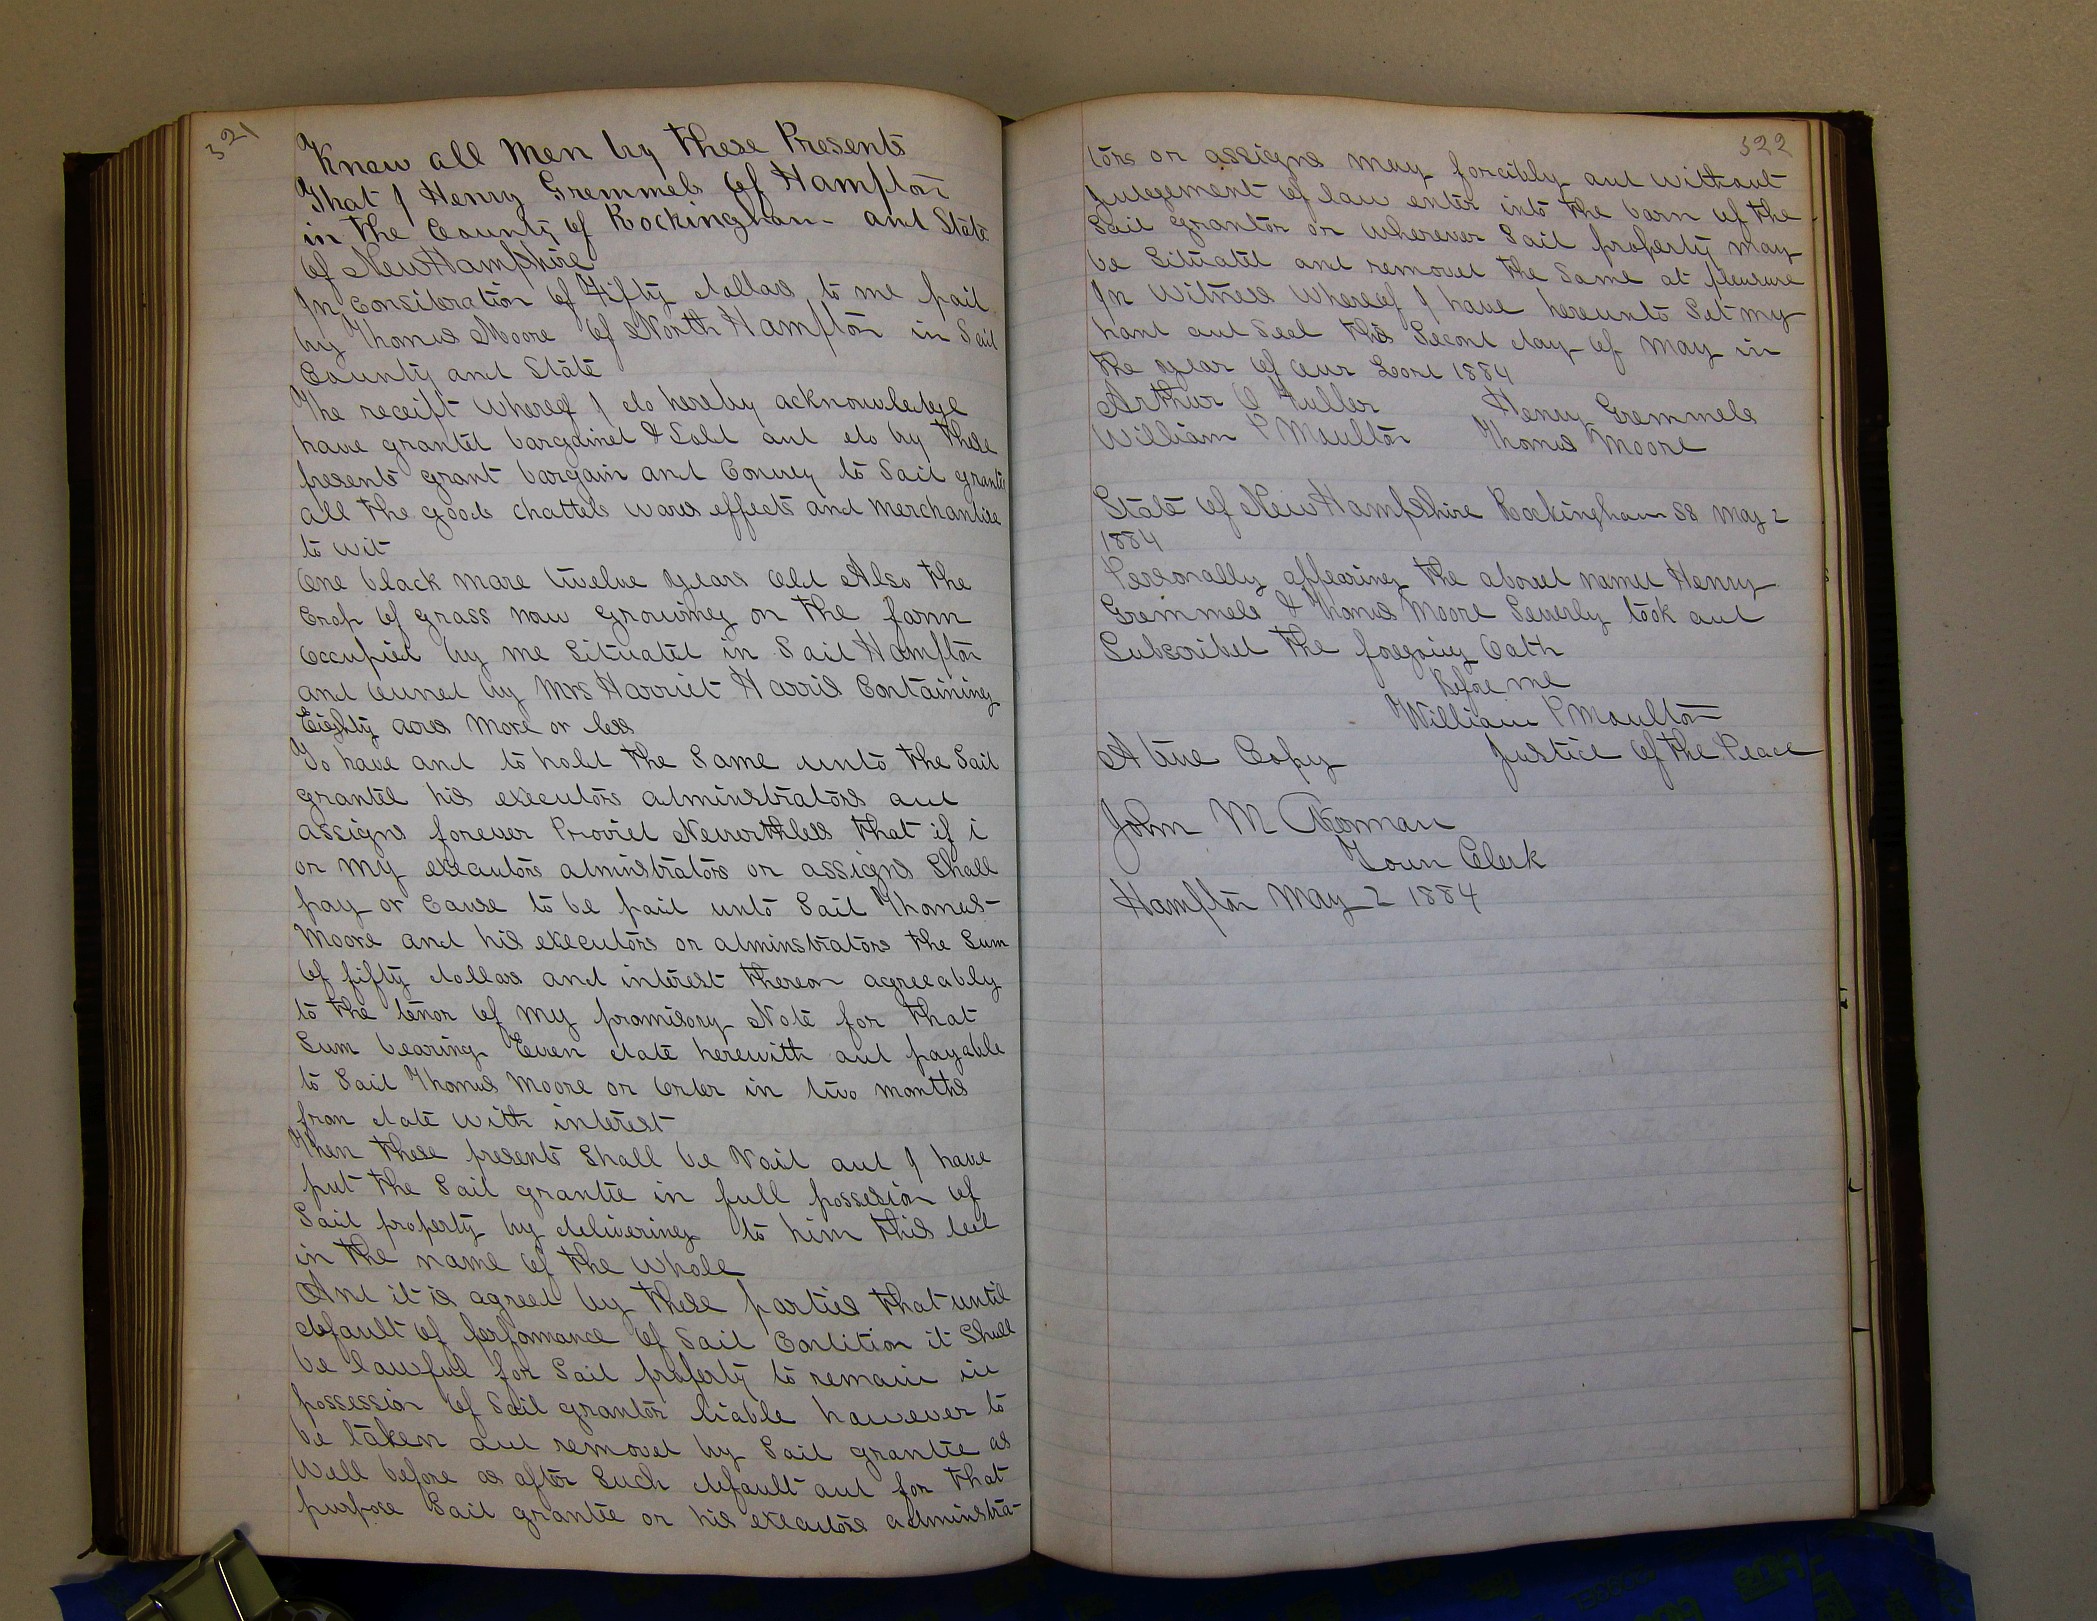 321
Know all Men by These Presents
That I Henry Gremmels of Hampton
in the County of Rockingham and State
of New Hampshire
In Consideration of Fifty dollars to me paid
by Thomas Moore of North Hampton in Said
County and State
The receipt whereof I do hereby acknowledge
have granted bargained & Sold and do by these
presents grant bargain and Convey to Said grantee
all the goods chattels wares effects and merchandise
to wit
One black mare twelve years old Also the
Crop of grass now growing on the farm
occupied by me Situated in Said Hampton
and owned by Mrs Harriet Harris Containing
Eighty acres More or less
To have and to hold the Same unto the Said
grantee his executors adminstrators and
assigns forever Provied Neverthless that if i
or my executors adminstrators or assigns Shall
pay or Cause to be paid unto Said Thomas
Moore and his executors or adminstrators the Sum
of fifty dollars and interest thereon agreeably
to the tenor of my promisory Note for that
Sum bearing Even date herewith and payable
to Said Thomas Moore or Order in two months
from date with interest
Then these presents Shall be Void and I have
put the Said grantee in full possesion of
Said property by delivering to him this deed
in the name of the whole
And it is agreed by these parties that until
default of performance of Said Condition it Shall
be lawful for Said property to remain in
possession of Said grantor liable however to
be taken and removed by Said grantee as
Well before as after Such default and for that
purpose Said grantee or his executors adminstra-
322
tors or assigns may forcibly and without
Judgement of law enter into the barn of the
Said grantor or wherever Said property may
be Situated and removed the Same at pleasure
In Witness Whereof I have hereunto Set my
hand and Seal this Second day of May in
the year of our Lord 1884
Arthur O Fuller Henry Gremmels
William P Moulton Thomas Moore
State of New Hampshire Rockingham SS May 2
1884
Personally appearing the above named Henry
Gremmels & Thomas Moore Severly took and
Subscribed the foregoing Oath
Before me
William P Moulton
A true Copy Justice of the Peace
John M Akerman
Town Clerk
Hampton May 2 1884